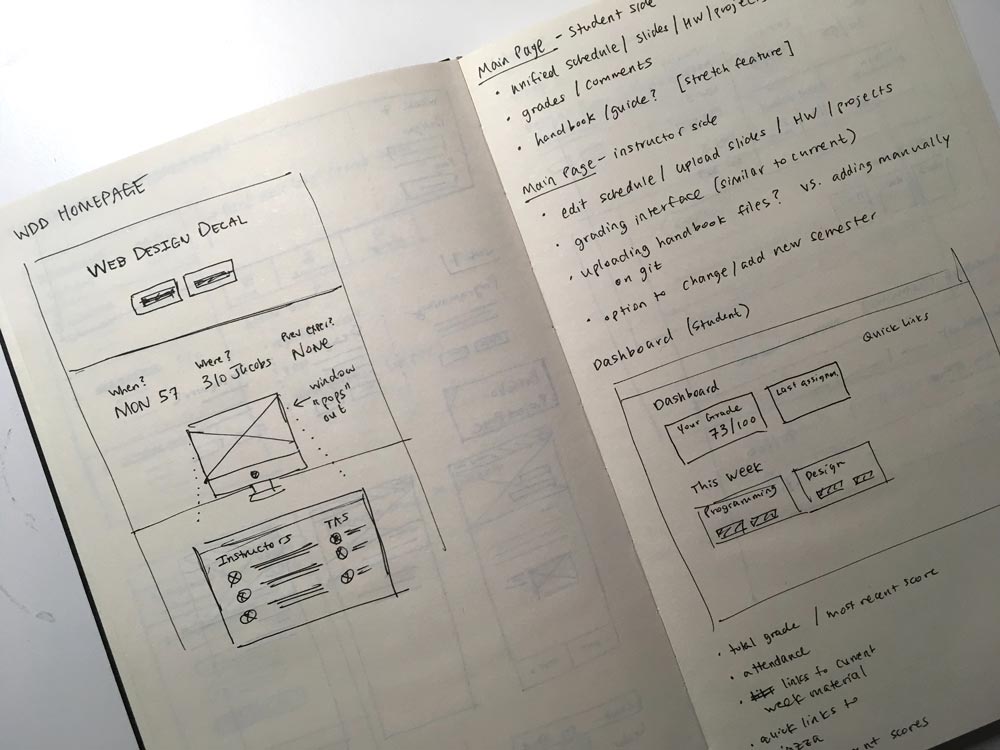 WDD HOMEPAGE
WEB DESIGN DECAL
When?
MON 5-7
Where?
310 Jacobs
Prev exper?
NONE
window
"pops"
out
Instructors
TAS
Main Page - Student side
• unified schedule / slides / HW / projects
• grades / comments
• handbook / guide? [stretch feature]
Main Page - instructor side
• edit schedule / upload slides / HW / projects
• grading interface (similar to current)
• uploading handbook files? vs. adding manually
on git
• option to change / add new semester
Dashboard (student)
Quick Links
Dashboard
Your Grade
73/100
Last assignm
This week
Programming
Design
• total grade / most recent score
• attendance
• links to current
week material
• quick links to
scores